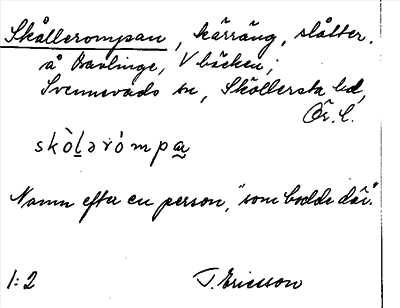 Skållerompan, kärräng, slåtter.
å Bavlinge, V bäcken;
Svennevads sn, Sköllersta hd,
Ör. l.
skò̀l̠ərómpa̰
Namn efter en person, "som bodde där".
1:2 T. Ericsson